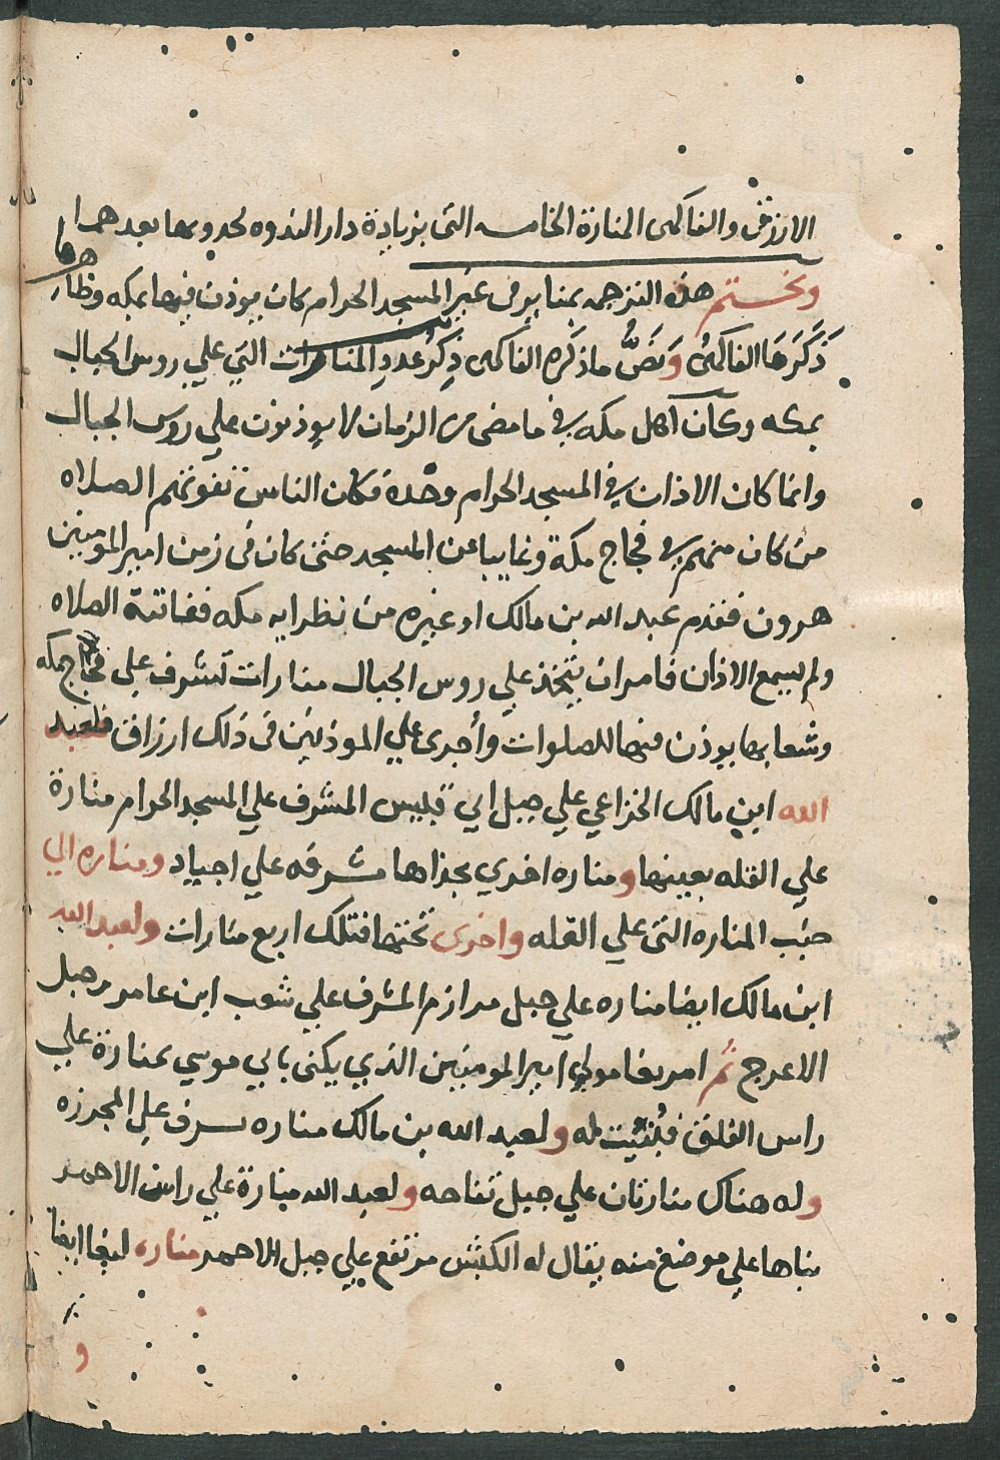 الازرقى والفاكهى المنارة الخامسه التى بزيادة دار الندوه لحدوثها بعدهما
ونختتم هذه الترجمه بمنا يرفى غير المسجد الحرام كان يوذن فيها بمكه وظاهرها
ذَكَرَهَا الفاكهىُ وَنَصُّ ما ذكره الفاكهى ذِكرُ عددِ المنارات التي علي روس الجبال
بمكه وكان اهل مكه في ما مضى من الزمان لا يوذنون علي روس الجبال
وانما كان الاذان في المسجد الحرام وحْدة فكان الناس تفوتهم الصلاه
من كان منهم في فجاج مكة وغايبا عن المسجد حتى كان فى زمن امير المومنين
هرون فقدم عبد الله بن مالك او غيره من نظرايه مكه ففاتته الصلاه
ولم يسمع الاذان فامر ان يتخذ علي روس الجبال منارات تشرف علي فجاج مكه
وشعابها يوذن فيها للصلوات وأجرى علي الموذنين فى ذلك ارزاق فلعبد
الله ابن مالك الخزاعي علي جبل ابي قبيس المشرف علي المسجد الحرام منارة
علي القله بعينها ومناره اخري بحذاها مشرفه علي اجياد ومناره الي
جنب المناره التى علي القله واخرى تحتها فتلك اربع منارات ولعبد الله
ابن مالك ايضا مناره علي جبل مرازم المشرف علي شعب ابن عامر وجبل
الاعرج ثم امر بغا مولي امير المومنين الذي يكنى بابي موسي بمنارة علي
راس الفلق فبُنيت له ولعبد الله بن مالك مناره تسرف علي المجرزه
وله هناك منارتان علي جبل تفاحه ولعبد الله منارة علي راس الاحمر
بناها علي موضع منه يقال له الكبش مرتفع علي جبل الاحمر مناره لبغا ايضا
و